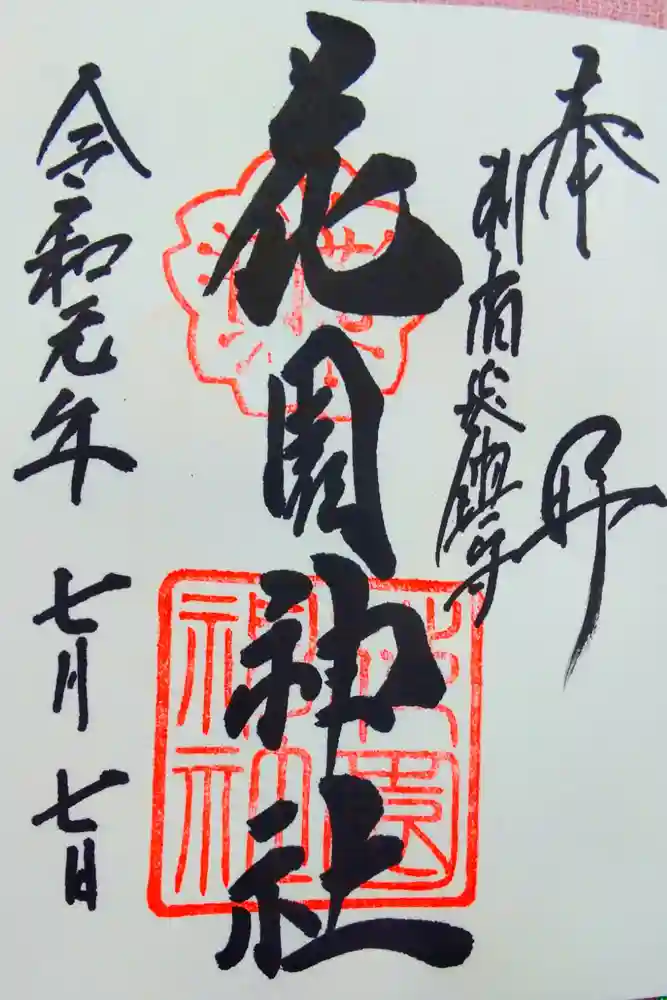 奉拝
新宿総鎮守
花園神社
花園
神社
令和元年 七月 七日